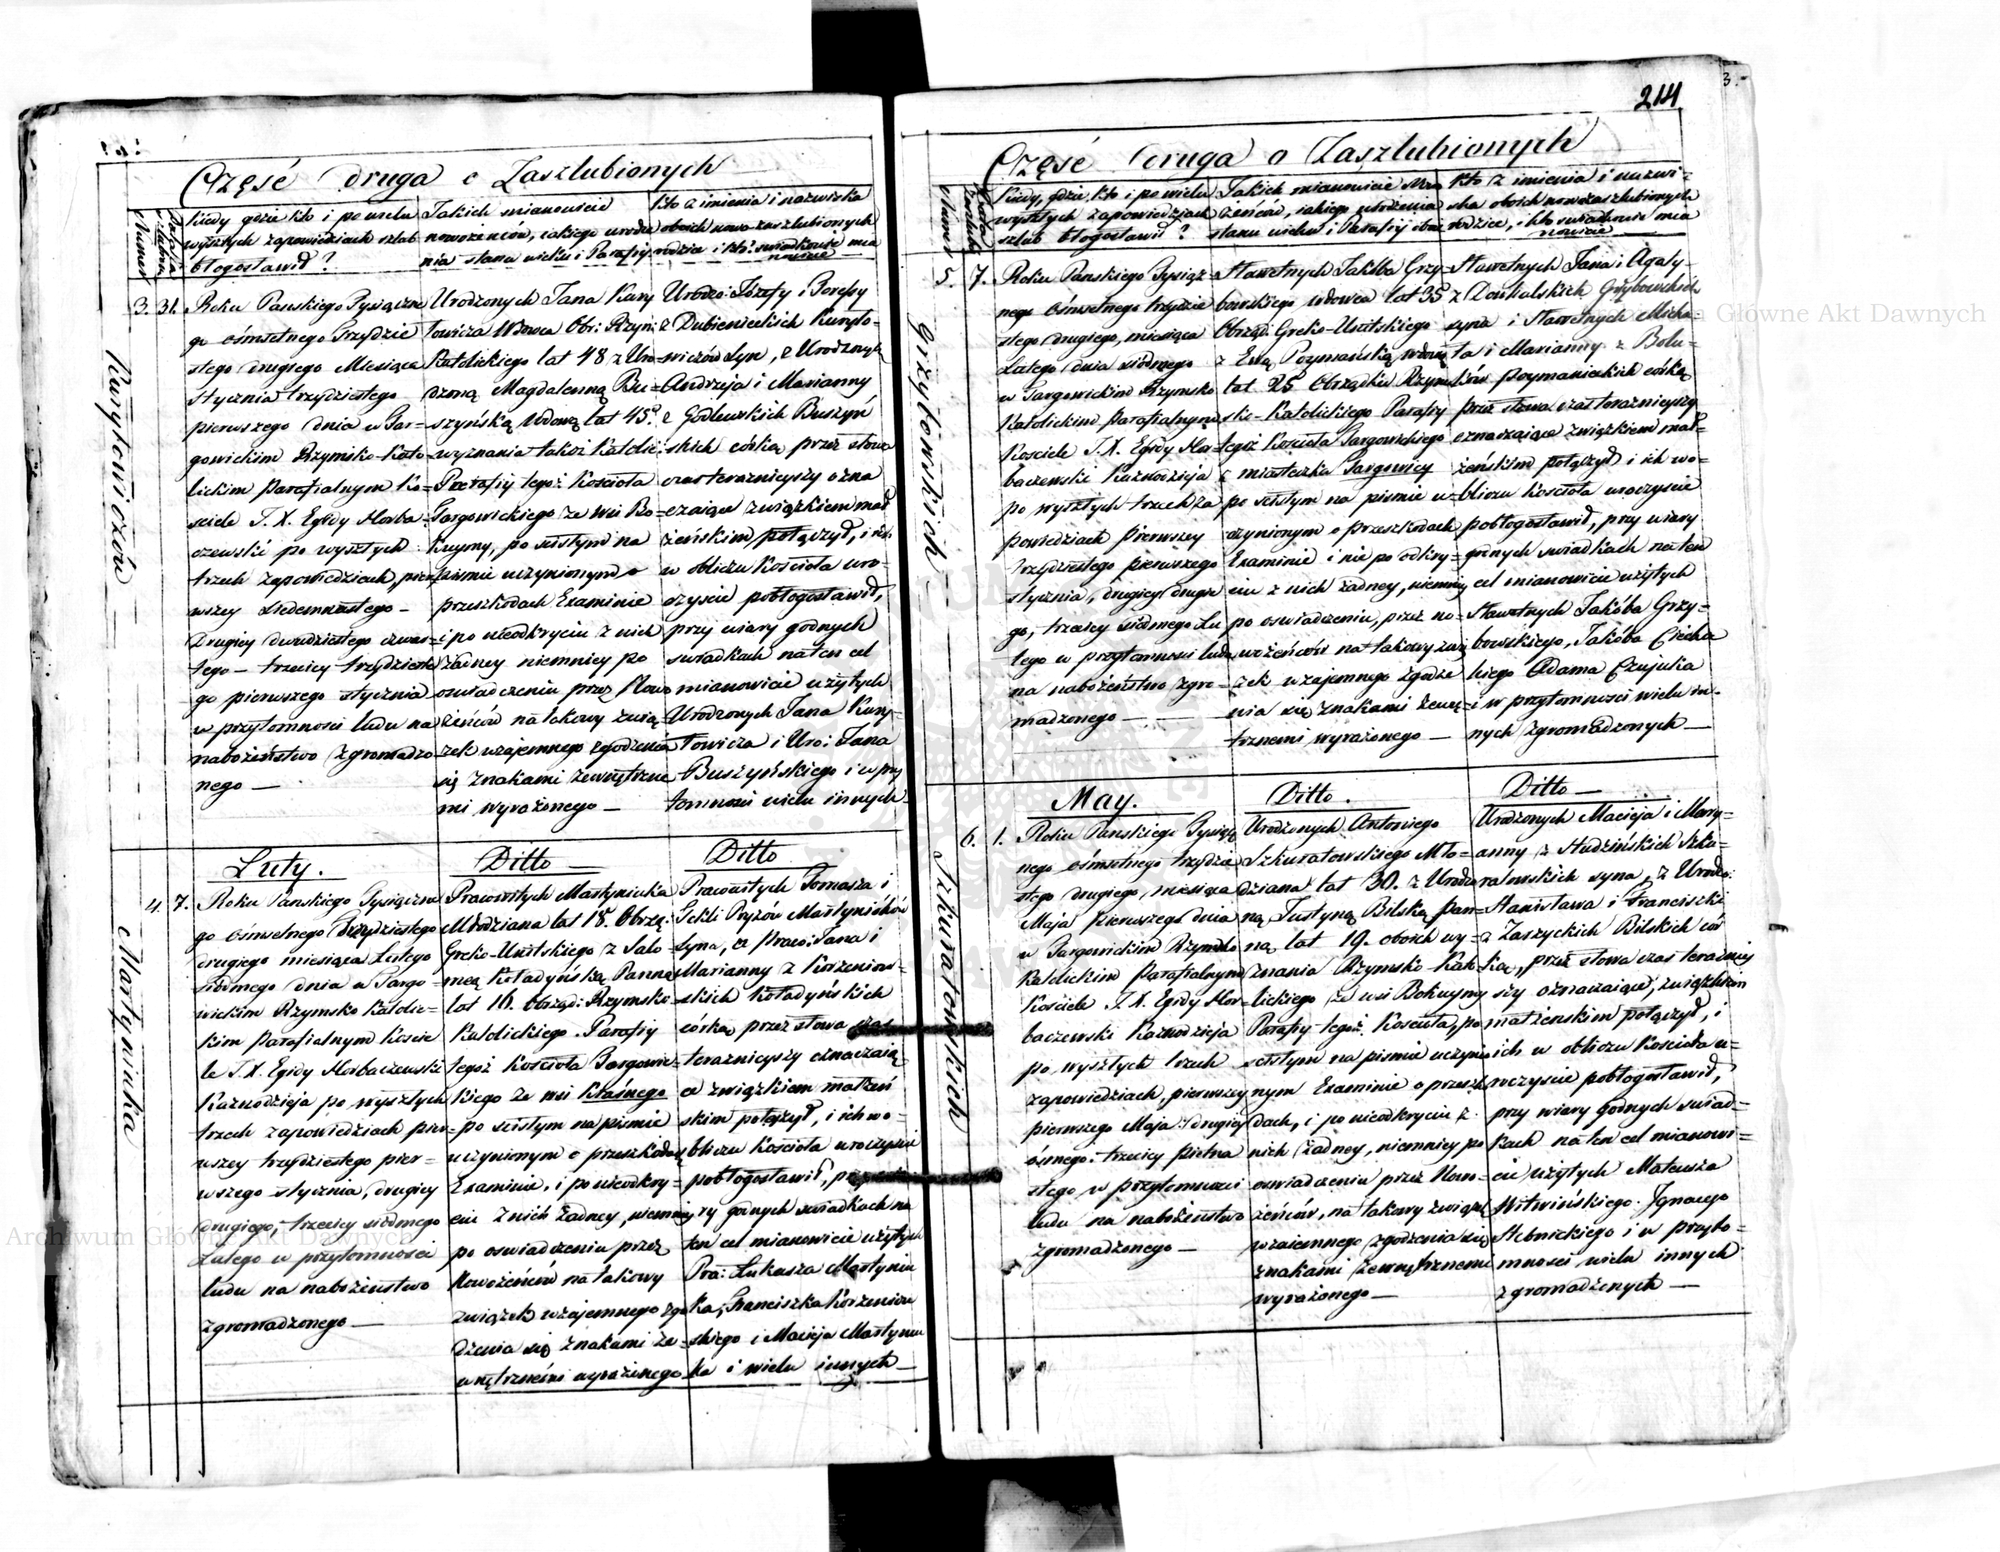 Część druga o Zaszlubionych
Numer
Data szlubu
Kiedy gdzie kto i po wielu
wyszłych zapowiedziach szlub
błogosławił?
Jakich mianowicie
nowożeńców, iakiego urodze
nia stanu wieku i Parafiy
Kto z imienia i nazwiska
oboich nowo zaszlubionych
rodzice i kto? swiadkowie mia
nowicie
3. 31.
Roku Pańskiego Tysiączne
go ośmsetnego Trzydzie
stego drugiego Miesiąca
stycznia trzydziestego
pierwszego dnia w Tar=
gowickim Rzymsko-Kato
lickim parafialnym Ko=
sciele J. X. Egidy Horba=
czewski po wyszłych
trzech zapowiedziach, pier
wszey siedemnastego –
Drugiey dwudziestego czwar=
tego – trzeciey trzydzieste
go pierwszego stycznia
w przytomnosci ludu na
nabożeństwo zgromadzo
nego —
Urodzonych Jana Kury
łowicza Wdowca Obr: Rzym:
Katolickiego lat 48 z Uro=
dzoną Magdalenną Bu=
szyńską Wdową lat 45.
wyznania takoż Katolic:
Parafiy tegoż Kościoła
Targowickiego ze wsi Bo=
kuymy, po scisłym na
pismie uczynionym o
przeszkodach Examinie
i po nieodkryciu z nich
żadney niemniey po
oswiadczeniu przez Nowo
żeńców na takowy zwią
zek wzajemnego zgodzenia
się znakami zewnętrzne
mi wyrażonego —
Urodzo: Józefy i Teresy
z Dubienieckich Kuryło=
wiczów syn, z Urodznych
Andrzeja i Marianny
z Godlewskich Buszyń
skich córką przez słowa
czas teraznieyszy ozna
czaiące związkiem mał
żeńskim połączył, i ich
w obliczu Kościoła uro=
czyscie pobłogosławił,
przy wiary godnych
swiadkach na ten cel
mianowicie użytych
Urodzonych Jana Kury=
łowicza i Uro: Jana
Buszyńskiego i w przy
tomnosci wielu innych
Kuryłowiczów
Luty.
Ditto —
Ditto
4. 7.
Roku Pańskiego Tysiączne
go ośmsetnego Trzydziestego
drugiego miesiąca Lutego
siódmego dnia w Targo=
wickim Rzymsko Katolic=
kim Parafialnym Koscie
le J. X. Egidy Horbaczewski
Kaznodzieja po wyszłych
trzech zapowiedziach pier=
wszey trzydziestego pier=
wszego stycznia, drugiey
drugiego, trzeciey siódmego
Lutego w przytomnosci
ludu na nabożeństwo
zgromadzonego —
Pracowitych Martyniuka
Młodziana lat 18. Obrzą:
Greko-Unitskiego z Salo=
meą Koładyńską Panną
lat 16. Obrząd: Rzymsko
Katolickiego Parafiy
tegoż Kościoła Targowic=
kiego ze wsi Krasnego
po scisłym na pismie
uczynionym o przeszkodach
Examinie, i po nieodkry=
ciu z nich żadney, niemniey
po oswiadczeniu przez
Nowożeńców na takowy
związek wzajemnego zgo
dzenia się znakami ze=
wnętrznemi wyrażonego
Pracowitych Tomasza i
Tekli Martyniuków
Syna, a Praco: Jana i
Marianny z Korzeniow=
skich Koładyńskich
córką przez słowa czas
teraznieyszy oznaczaią
ce związkiem małżeń
skim połączył, i ich w o=
bliczu Kościoła uroczyscie
pobłogosławił, przy
ry godnych swiadkach na
ten cel mianowicie użytych
Pra: Łukasza Martyniu
ka, Franciszka Korzeniow
skiego i Macieja Martyniu
ka i wielu innych —
Martyniuka
214
3.
Część druga o Zaszlubionych
Numer
Data szlubu
Kiedy, gdzie, kto i po wielu
wyszłych zapowiedziach
szlub błogosławił?
Jakich mianowicie Nowo
żeńców, iakiego urodzenia
stanu wieku i Parafiy
Kto z imienia i nazwi=
ska oboich nowozaszlubionych
rodzice, i kto swiadkowie mia
nowicie
5. 7.
Roku Pańskiego Tysiącz=
nego Ośmsetnego trzydzie
stego drugiego, miesiąca
Lutego dnia siódmego
w Targowickim Rzymsko
Katolickim parafialnym
Kosciele J. X. Egidy Hor=
baczewski Kaznodzieja
po wyszłych trzech za
powiedziach pierwszey
trzydziestego pierwszego
stycznia, drugiey drugie
go, trzeciey siódmego Lu
tego w przytomnosci ludu
na nabożeństwo zgro=
madzonego —
Sławetnych Jakóba Grzy=
bowskiego wdowca lat 35
Obrząd: Greko-Unitskiego
z Ewą Poymańską wdową
lat 25 Obrządku Rzym
sko-Katolickiego Parafiy
tegoż Kościoła Targowickiego
z miasteczka Targowicy
po scisłym na pismie u=
czynionym o przeszkodach
Examinie i nie po odkry=
ciu z nich żadney, niemniey
po oswiadczeniu, przez no=
wożeńców na takowy zwią
zek wzajemnego zgodze
nia się znakami zewnę=
trznemi wyrażonego —
Sławetnych Jana i Agafy=
z Doskalskich Grzybowskich
syna i Sławetnych Micha
ła i Marianny z
Poymanieckich córką
przez słowa czas teraznieyszy
oznaczaiące związkiem mał=
żeńskim połączył i ich w o=
bliczu Kościoła uroczyscie
pobłogosławił, przy wiary
godnych swiadkach na ten
cel mianowicie użytych
Sławetnych Jakóba Grzy=
bowskiego, Jakóba
kiego Adama Czujuka
i w przytomnosci wielu in=
nych zgromadzonych —
Grzybowskich
May.
Ditto.
Ditto —
6. 1.
Roku Pańskiego Tysiącz
nego ośmsetnego trzydzie
stego drugiego, miesiąca
Maja pierwszego dnia
w Targowickim Rzymsko
Katolickim parafialnym
Kosciele J. X. Egidy Hor=
baczewski Kaznodzieja
po wyszłych trzech
zapowiedziach, pierwszey
pierwszego Maja drugiey
ósmego. trzeciey piętna
stego w przytomnosci
ludu na nabożeństwo
zgromadzonego —
Urodzonych Antoniego
Szkuratowskiego Mło=
dziana lat 30. z Urodzo
ną Justyną Bilską pan=
ną lat 19. oboich wy=
znania Rzymsko-Kato
lickiego ze wsi Bokuymy
Parafiy tegoż Kosciuła, po
scisłym na pismie uczynio
nym Examinie o przeszko
dach, i po nieodkryciu z
nich żadney, niemniey po
oswiadczeniu przez Nowo=
żeńców, na takowy związek
wzaiemnego zgodzenia się
znakami zewnętrznemi
wyrażonego —
Urodzonych Macieja i Mary=
anny z Szku=
ratowskich syna, z Urodzo:
Stanisława i Franciszki
z Zaszyckich Bilskich cór
ką, przez słowa czas teraźniey
szy oznaczaiące, związkiem
małżenskim połączył, i
ich w obliczu Kościoła u=
roczyscie pobłogosławił,
przy wiary godnych swiad=
kach na ten cel mianowi=
cie użytych Mateusza
Witwińskiego. Ignacego
i w przyto=
mnosci wielu innych
zgromadzonych —
Szkuratowskich
Archiwum Główne Akt Dawnych
Główne Akt Dawnych